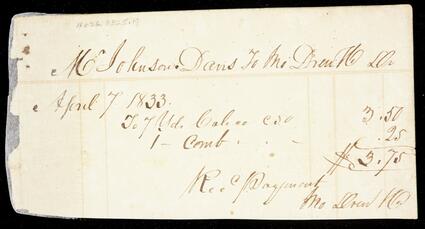 Mr Johnson Davis To Mo Drew Dr
April 7 1833.
To 7 Yds Calico c50 3.50
1 - Comb . . - .25
$ 3.75
Recd Payment
Mo Drew